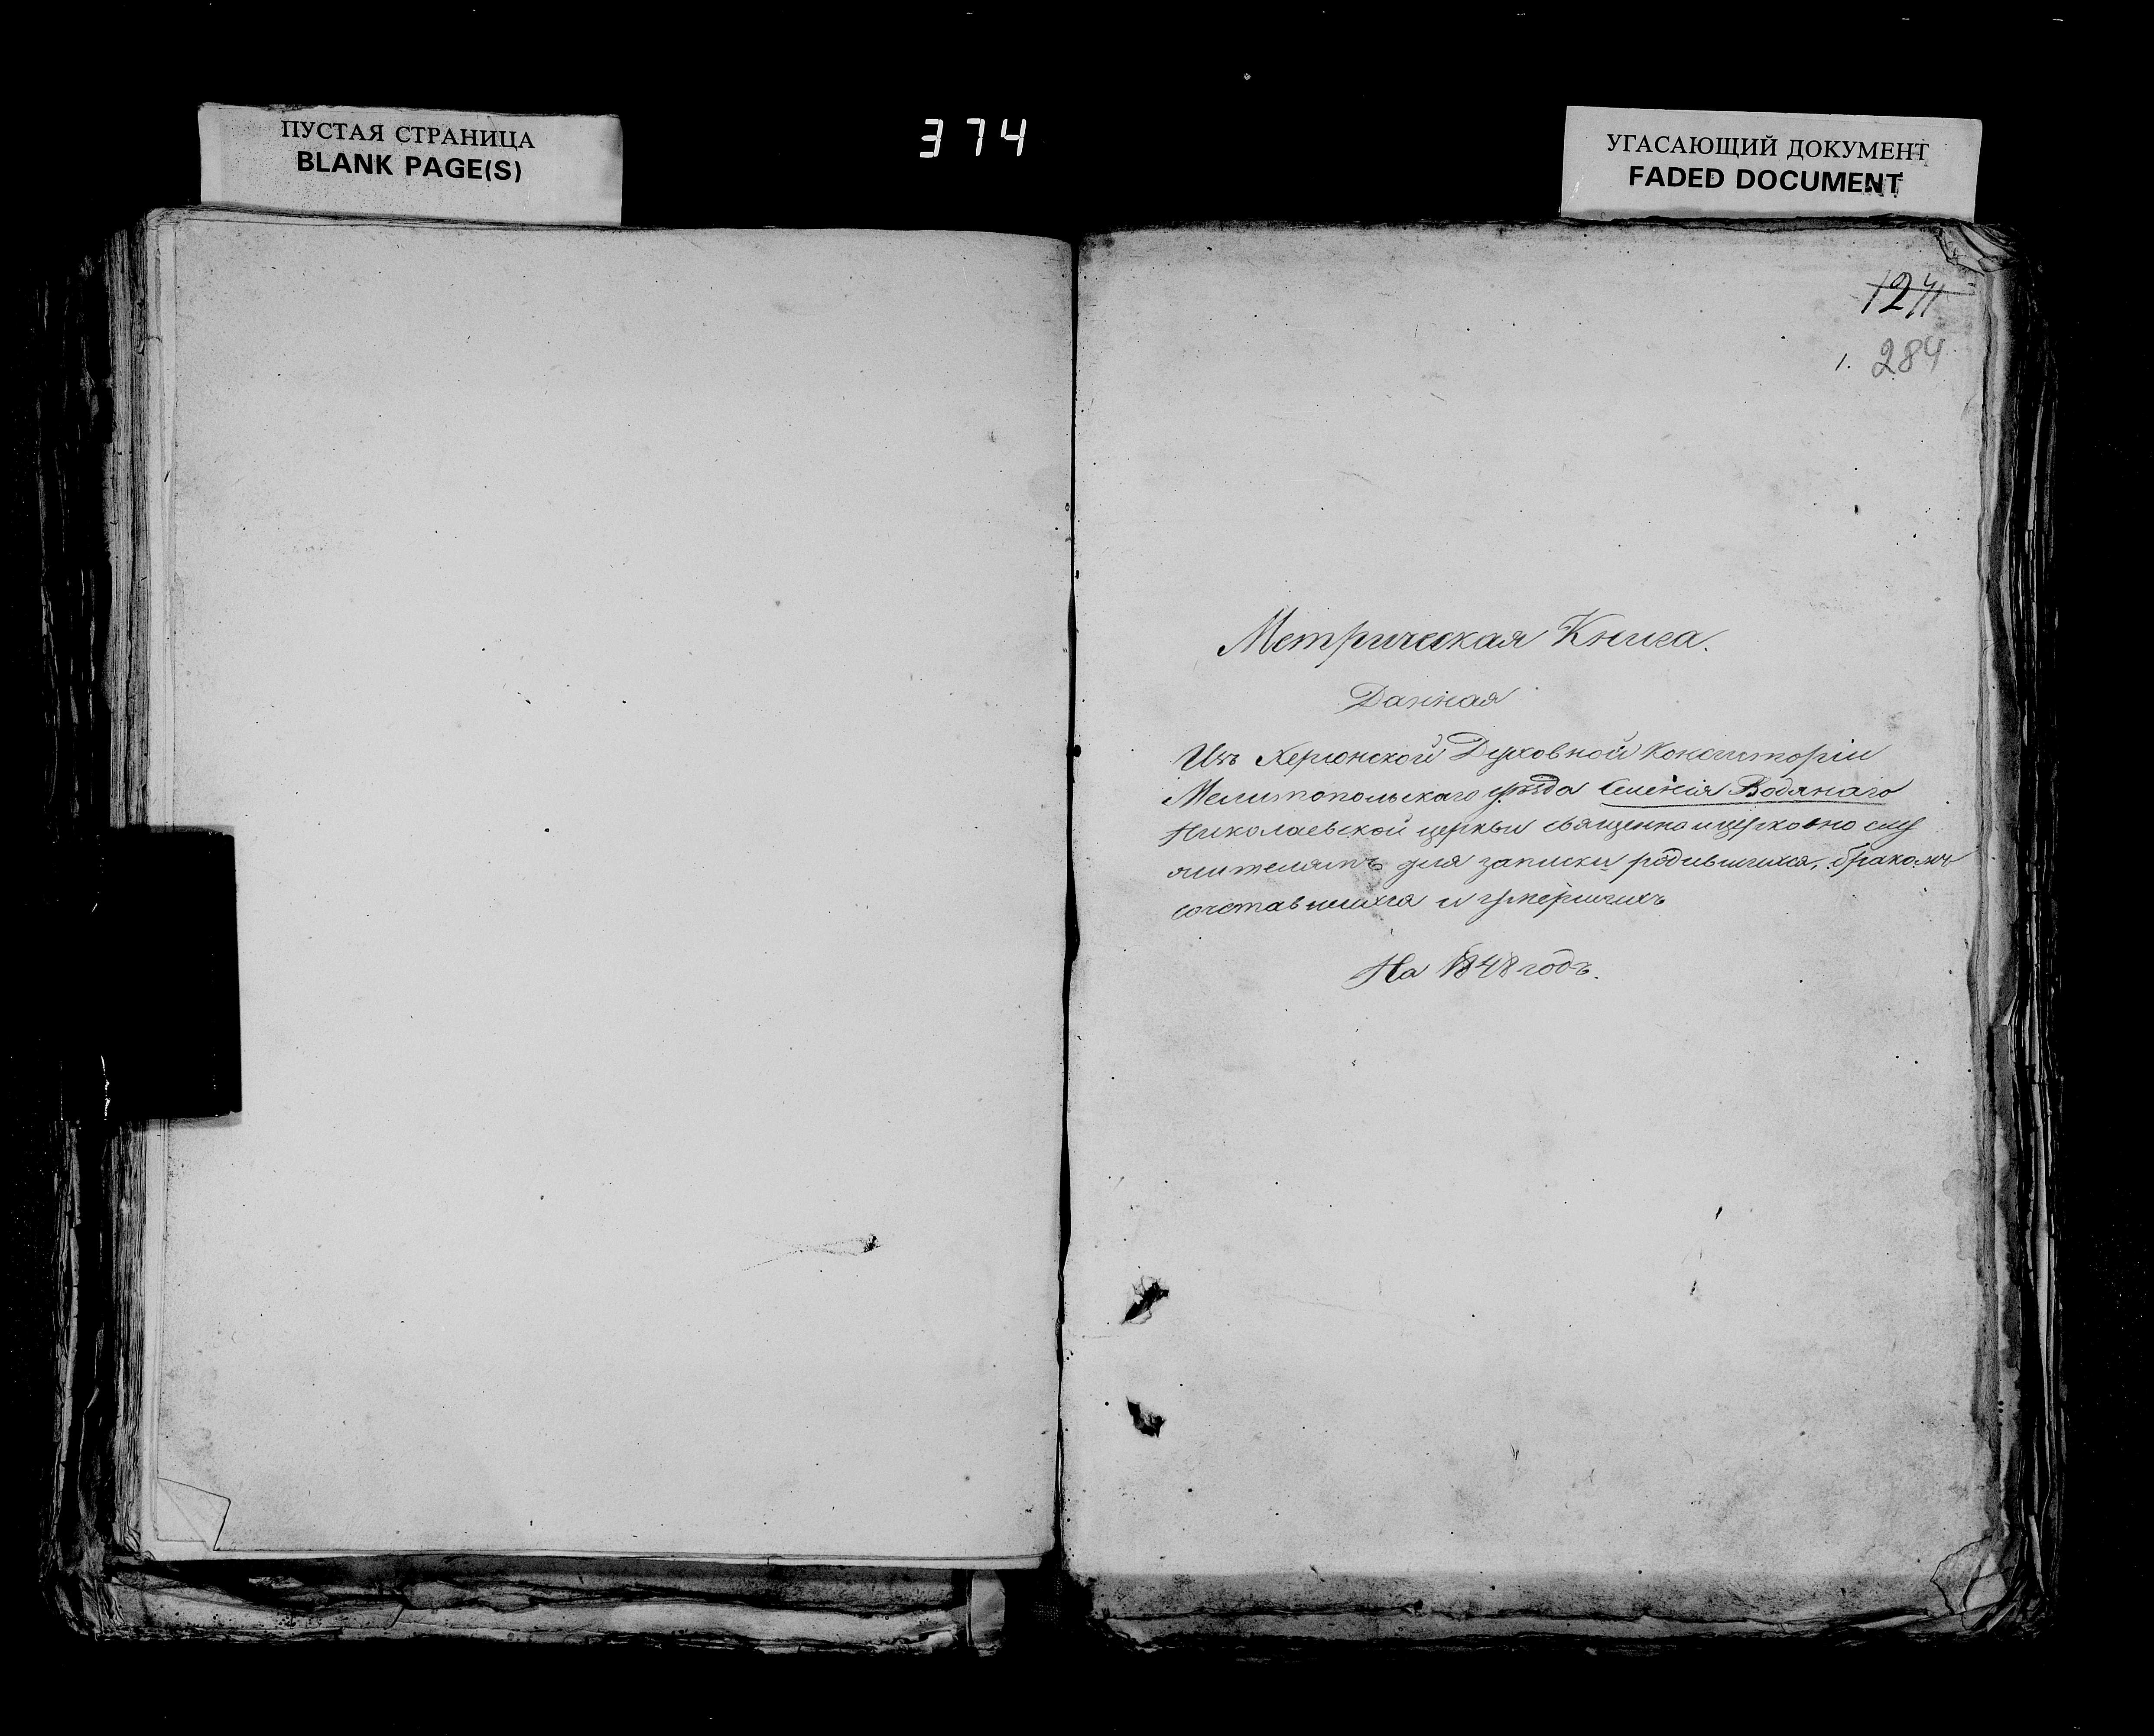 ПУСТАЯ СТРАНИЦА
BLANK PAGE(S)
374
УГАСАЮЩИЙ ДОКУМЕНТ
FADED DOCUMENT
1. 284
Метрическая Книга.
Данная
Изъ Херсонской Духовной Консисторіи
Мелитопольскаго уѣзда Селенія Водянаго
Николаевской церкви священно и церковно слу
жителямъ для записки родившихся, бракомъ
сочетавшихся и умершихъ
На 1848 годъ.